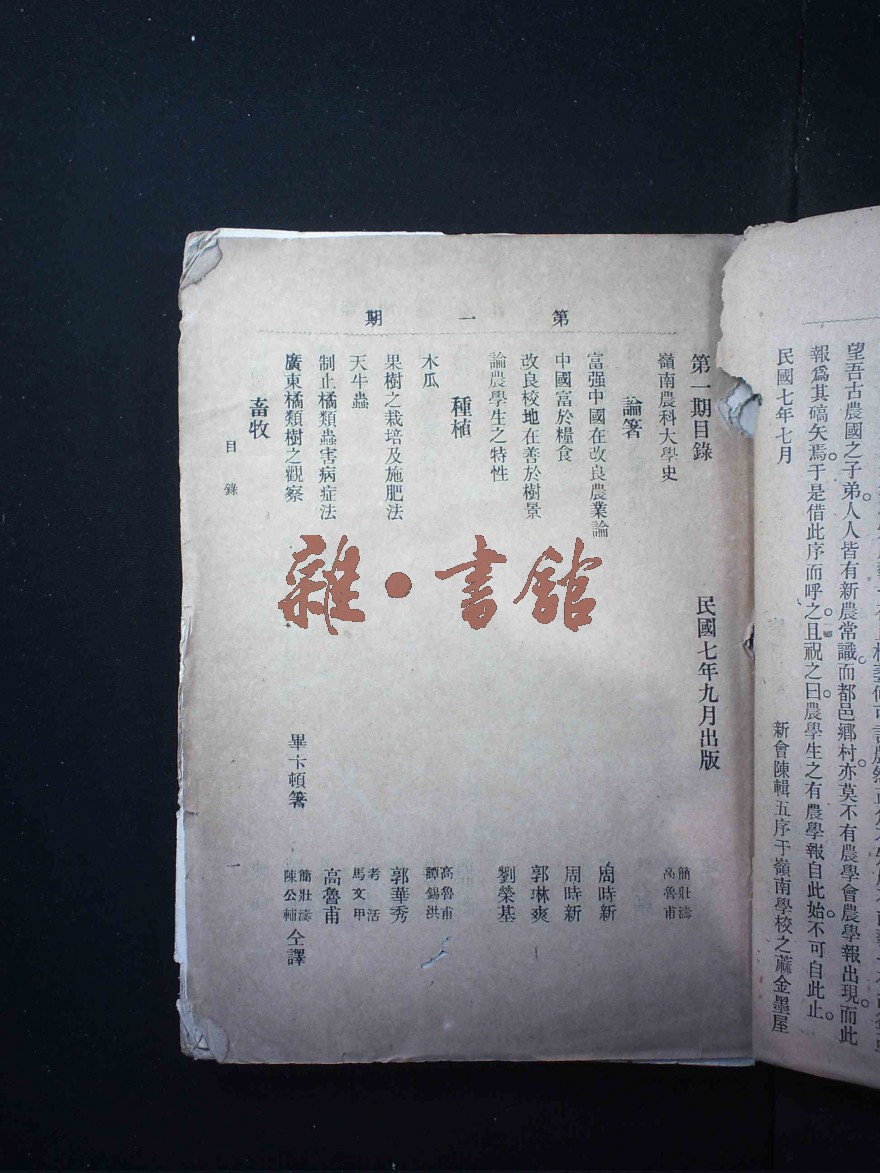 望吾古農國之子弟。人人皆有新農常識。而都邑鄉村。亦莫不有農學會農學報出現。而此
報爲其嚆矢焉。于是借此序而呼之。且祝之曰。農學生之有農學報自此始。不可自此止。
民國七年七月
新會陳輯五序于嶺南學校之蔴金墨屋
第一期
第一期目錄 民國七年九月出版
嶺南農科大學史 簡壯濤 高魯甫
論箸
富强中國在改良農業論 周時新
中國富於糧食 周時新
改良校地在善於樹景 郭琳爽
論農學生之特性 劉榮基
種植
木瓜 高魯甫 譚錫洪
果樹之栽培及施肥法 郭華秀
天牛蟲 考活 馬文甲
制止橘類蟲害病症法 高魯甫
廣東橘類樹之觀察 畢卡頓箸 簡壯濤 陳公輔 仝譯
畜牧
目錄
一
雜·書館